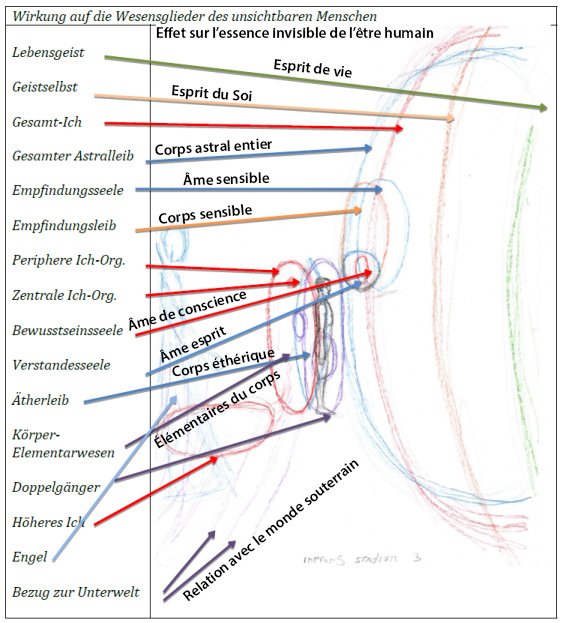 Wirkung auf die Wesensglieder des unsichtbaren Menschen
Effet sur l'essence invisible de l'être humain
Lebensgeist
Esprit de vie
Geistselbst
Esprit du Soi
Gesamt-Ich
Gesamter Astralleib
Corps astral entier
Empfindungsseele
Âme sensible
Empfindungsleib
Corps sensible
Periphere Ich-Org.
Zentrale Ich-Org.
Bewusstseinsseele
Âme de conscience
Verstandesseele
Âme esprit
Ätherleib
Corps éthérique
Körper-
Elementarwesen
Élémentaires du corps
Doppelgänger
Höheres Ich
Engel
Bezug zur Unterwelt
Relation avec le monde souterrain
STADIUM 3